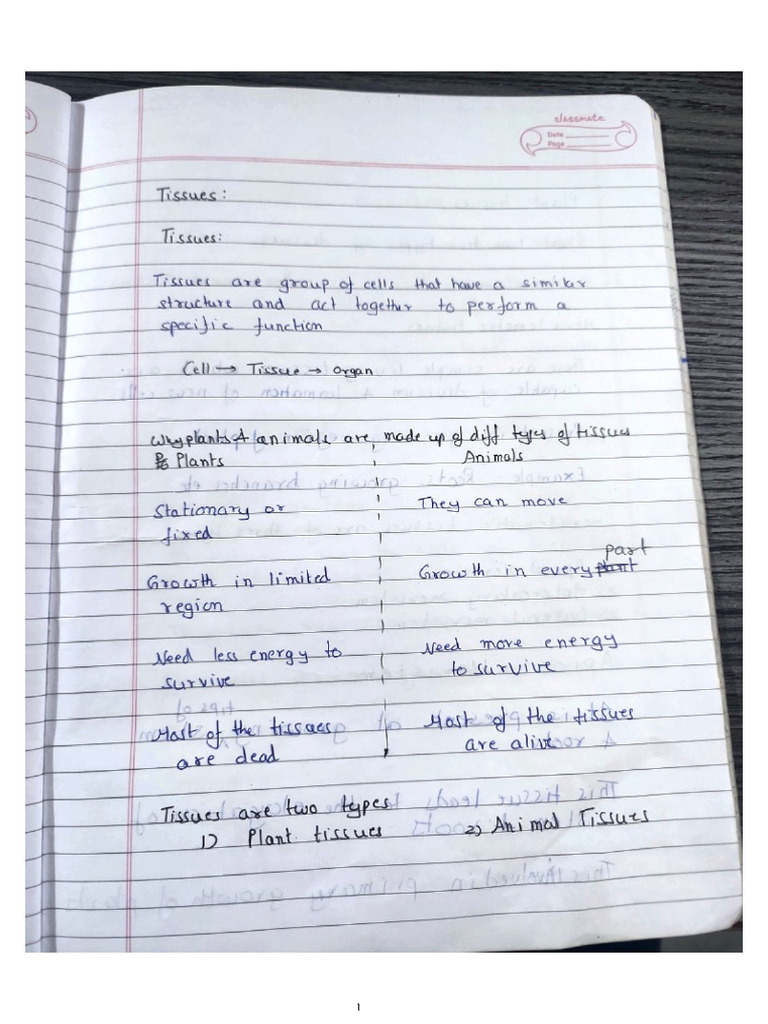 classmate
Date
Page
Tissues:
Tissues:
Tissues are group of cells that have a similar
structure and act together to perform a
specific function
Cell → Tissue → Organ
Why plants & animals are made up of diff types of tissues
Plants Animals
Stationary or They can move
fixed
Growth in limited Growth in every part
region
Need less energy to Need more energy
survive to survive
Most of the tissues Most of the tissues
are dead are alive
Tissues are two types
1) Plant tissues 2) Animal Tissues
1